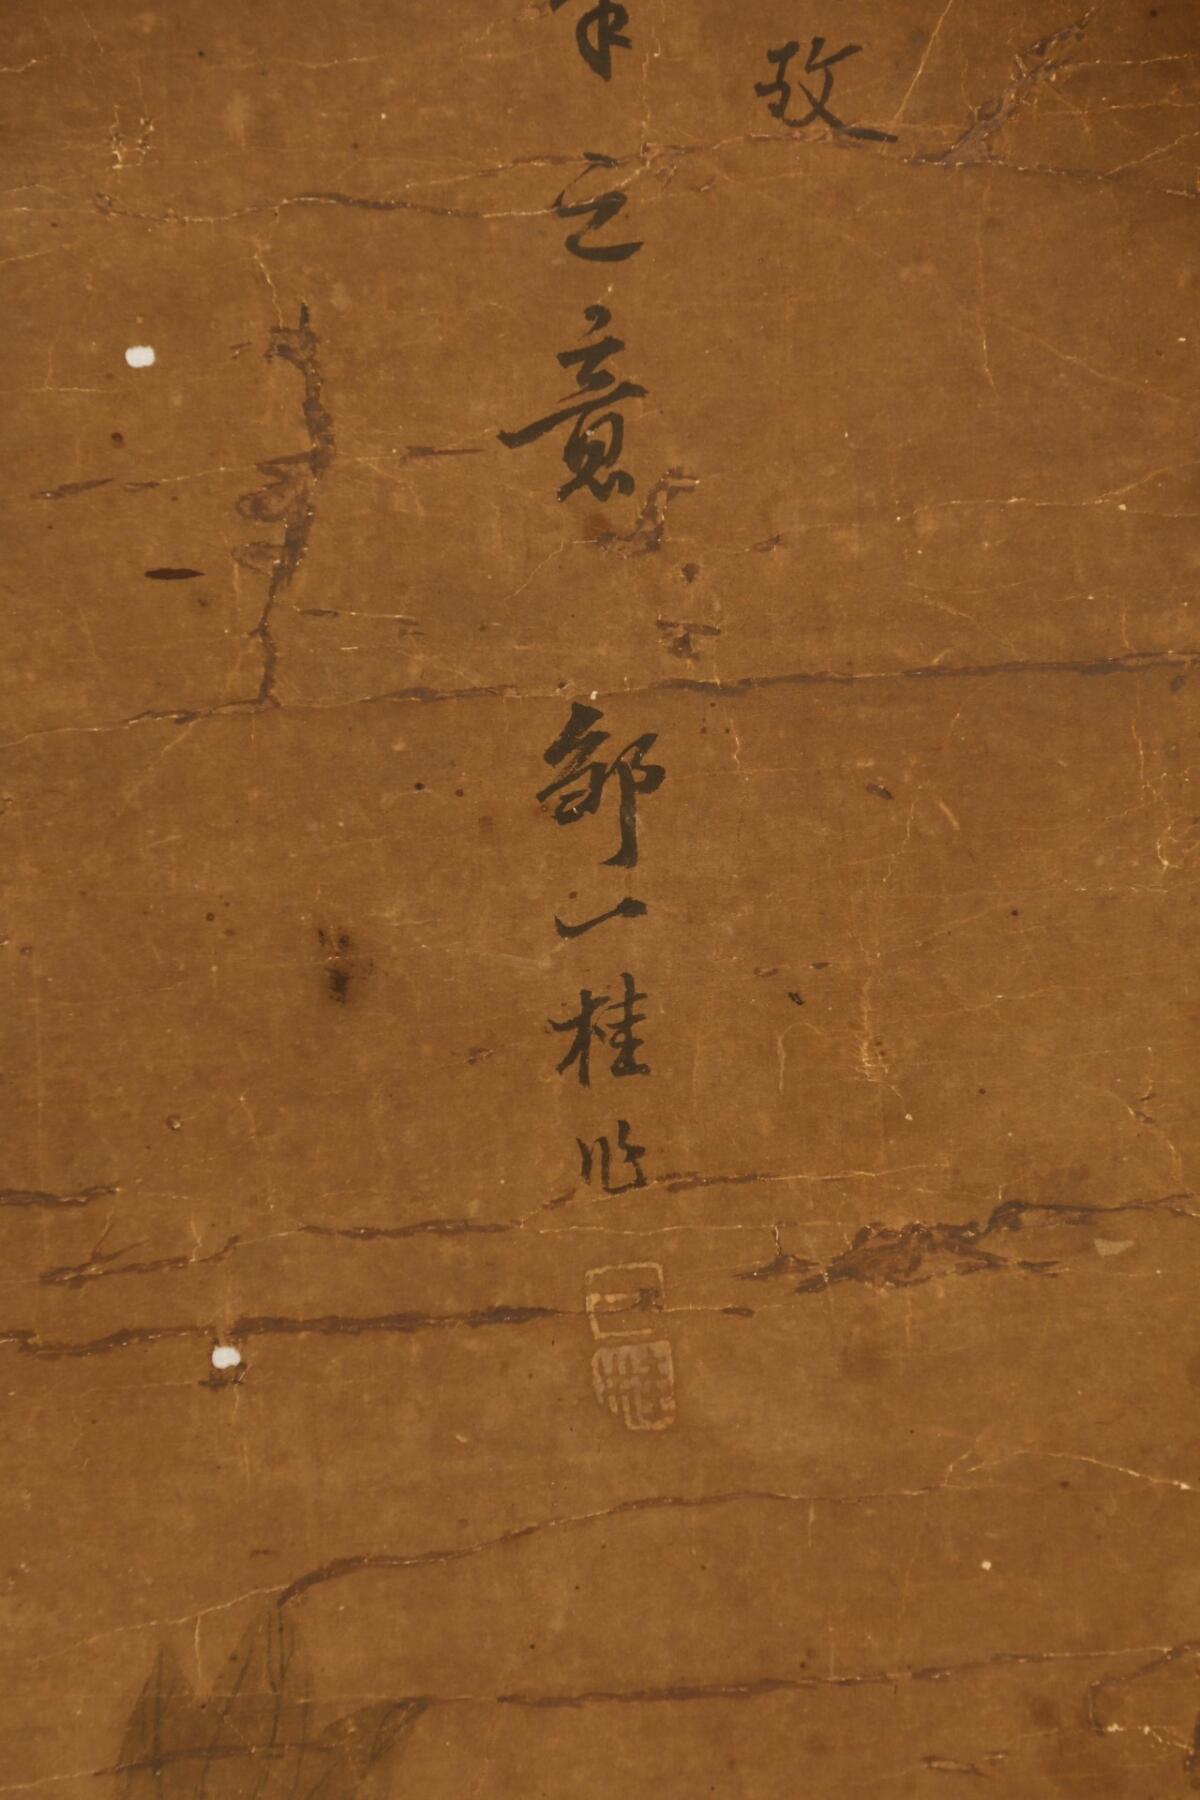 致
之意 鄒一桂臨